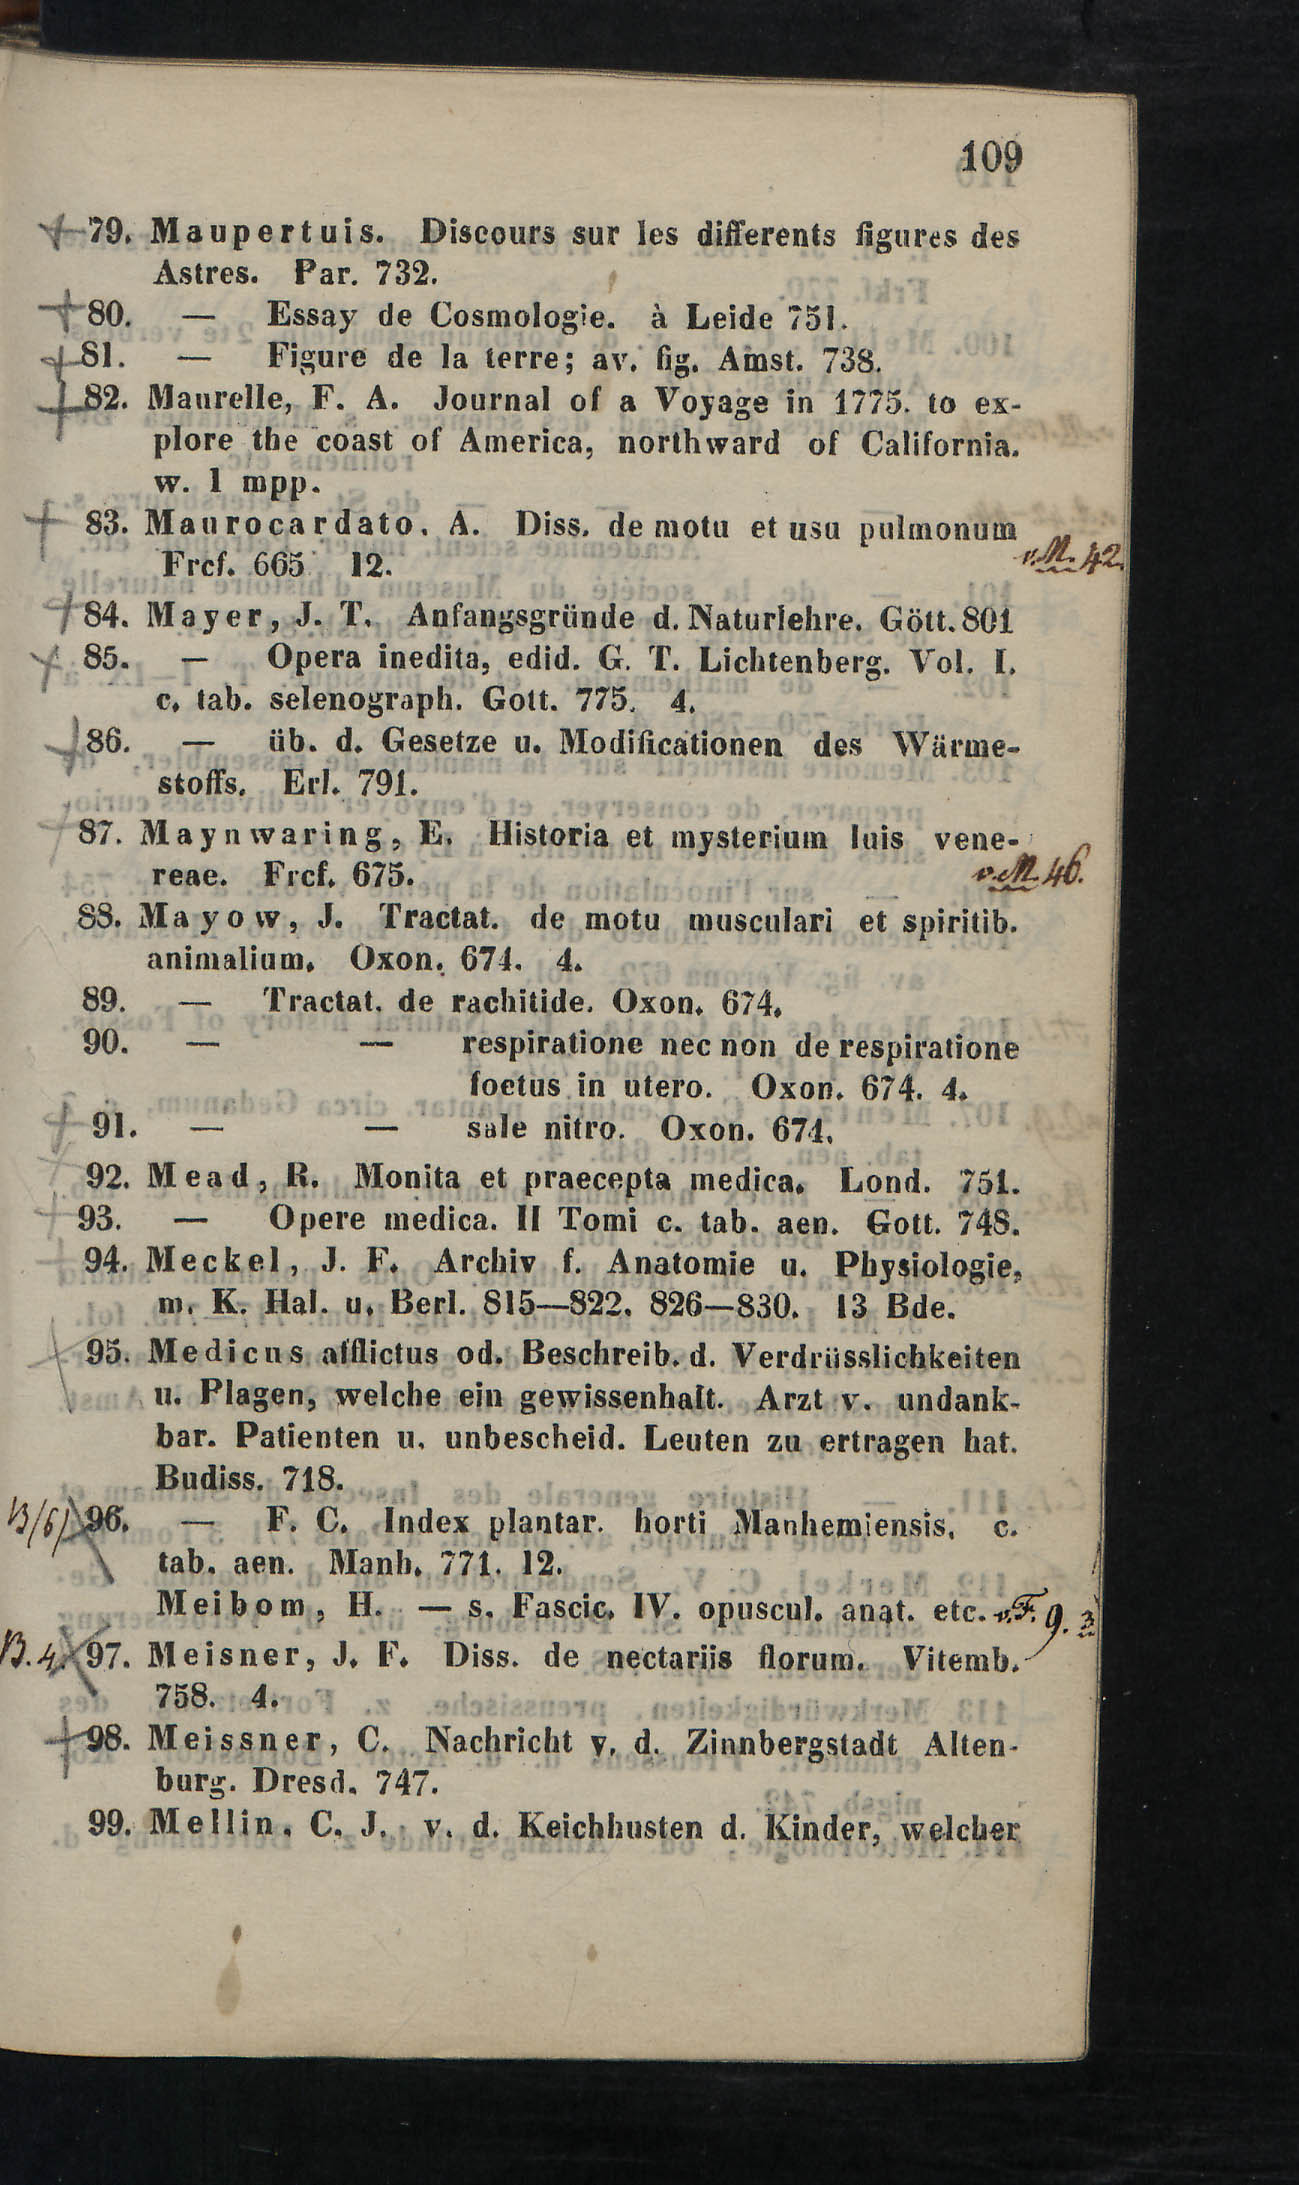 109
79. Maupertuis. Discours sur les differents figures des
Astres. Par. 732.
80. — Essay de Cosmologie. à Leide 751.
81. — Figure de la terre; av. fig. Amst. 738.
82. Maurelle, F. A. Journal of a Voyage in 1775. to ex-
plore the coast of America, northward of California.
w. 1 mpp.
83. Maurocardato. A. Diss. de motu et usu pulmonum
Frcf. 665 12. v. M. 42.
84. Mayer, J. T. Anfangsgründe d. Naturlehre. Gött. 801
85. — Opera inedita, edid. G. T. Lichtenberg. Vol. I.
c. tab. selenograph. Gott. 775. 4.
86. — üb. d. Gesetze u. Modificationen des Wärme-
stoffs. Erl. 791.
87. Maynwaring, E. Historia et mysterium luis vene-
reae. Frcf. 675. v. M. 46.
88. Mayow, J. Tractat. de motu musculari et spiritib.
animalium. Oxon. 674. 4.
89. — Tractat. de rachitide. Oxon. 674.
90. — — respiratione nec non de respiratione
foetus in utero. Oxon. 674. 4.
91. — — sale nitro. Oxon. 674.
92. Mead, R. Monita et praecepta medica. Lond. 751.
93. — Opere medica. II Tomi c. tab. aen. Gott. 748.
94. Meckel, J. F. Archiv f. Anatomie u. Physiologie,
m. K. Hal. u. Berl. 815—822. 826—830. 13 Bde.
95. Medicus afflictus od. Beschreib. d. Verdrüsslichkeiten
u. Plagen, welche ein gewissenhalt. Arzt v. undank-
bar. Patienten u. unbescheid. Leuten zu ertragen hat.
Budiss. 718.
96. — F. C. Index plantar. horti Manhemiensis, c.
tab. aen. Manh. 771. 12.
Meibom, H. — s. Fascic. IV. opuscul. anat. etc. v. F. 9.
B. 4. 97. Meisner, J. F. Diss. de nectariis florum. Vitemb.
758. 4.
98. Meissner, C. Nachricht v. d. Zinnbergstadt Alten-
burg. Dresd. 747.
99. Mellin, C. J. v. d. Keichhusten d. Kinder, welcher